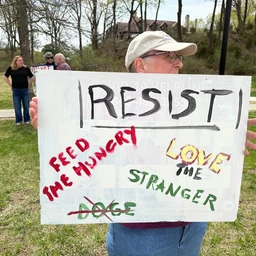 RESIST
FEED
THE HUNGRY
LOVE
THE
STRANGER
DOGE